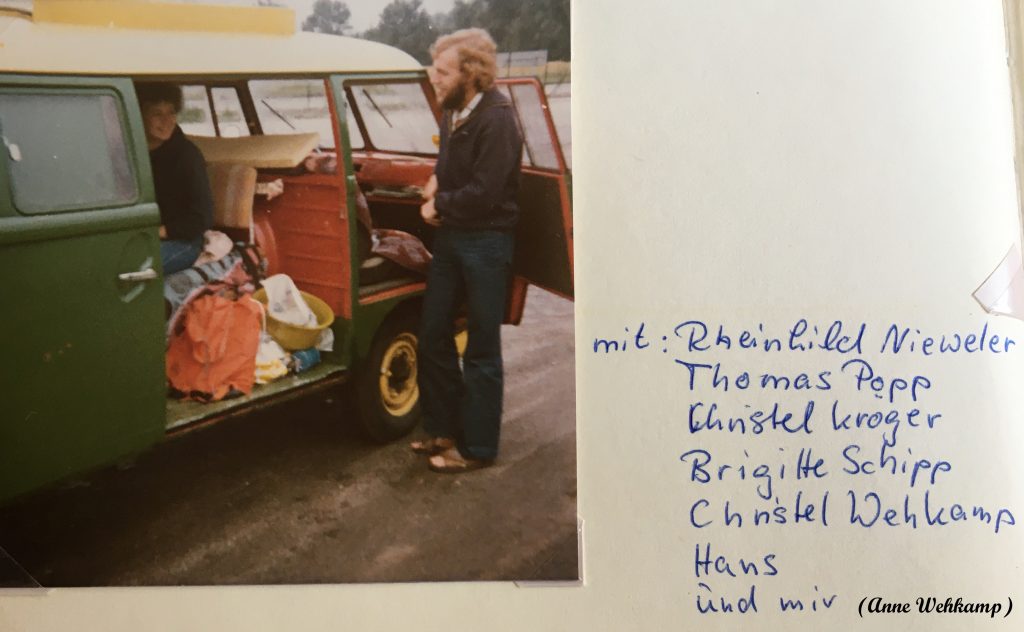 mit: Rheinhild Nieweler
Thomas Popp
Christel Kroger
Brigitte Schipp
Christel Wehkamp
Hans
und mir (Anne Wehkamp)